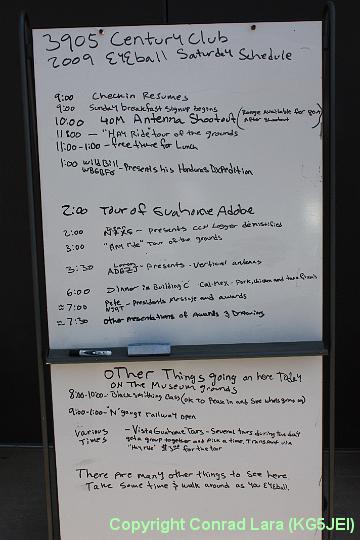 3905 Century Club
2009 EYEball Saturday Schedule
9:00 Checkin Resumes
9:00 Sunday breakfast signup begins
10:00 40M Antenna Shootout (Range Available for fun
After shootout)
11:00 — "HAM Ride" tour of the grounds
11:00-1:00 - free time for Lunch
1:00 Wild Bill - Presents his Honduras DXpedition
2:00 Tour of Guahome Adobe
2:00 - Presents CCN Logger demistified
3:00 "HAM Ride" Tour of the grounds
3:30 - Presents - Vertical antennas
6:00 Dinner in Building C Cal-Mex - Pork, chicken and
≈ 7:00 Pete - Presidents message and awards
≈ 7:30 other presentations of Awards & Drawing
OTHER Things going on here Today
ON THE Museum grounds
8:00-10:00 - Blacksmithing Class (OK to Peace in and see whats going on)
9:00-1:00 - 'N' gauge railway open
various - Vista Guahome Tours - Several tours during the day
Times get a group together and Pick a time. Transport via
for the tour
There are many other things to see here
Take some time & walk around as you EYEball.
Copyright Conrad Lara (KG5JEI)